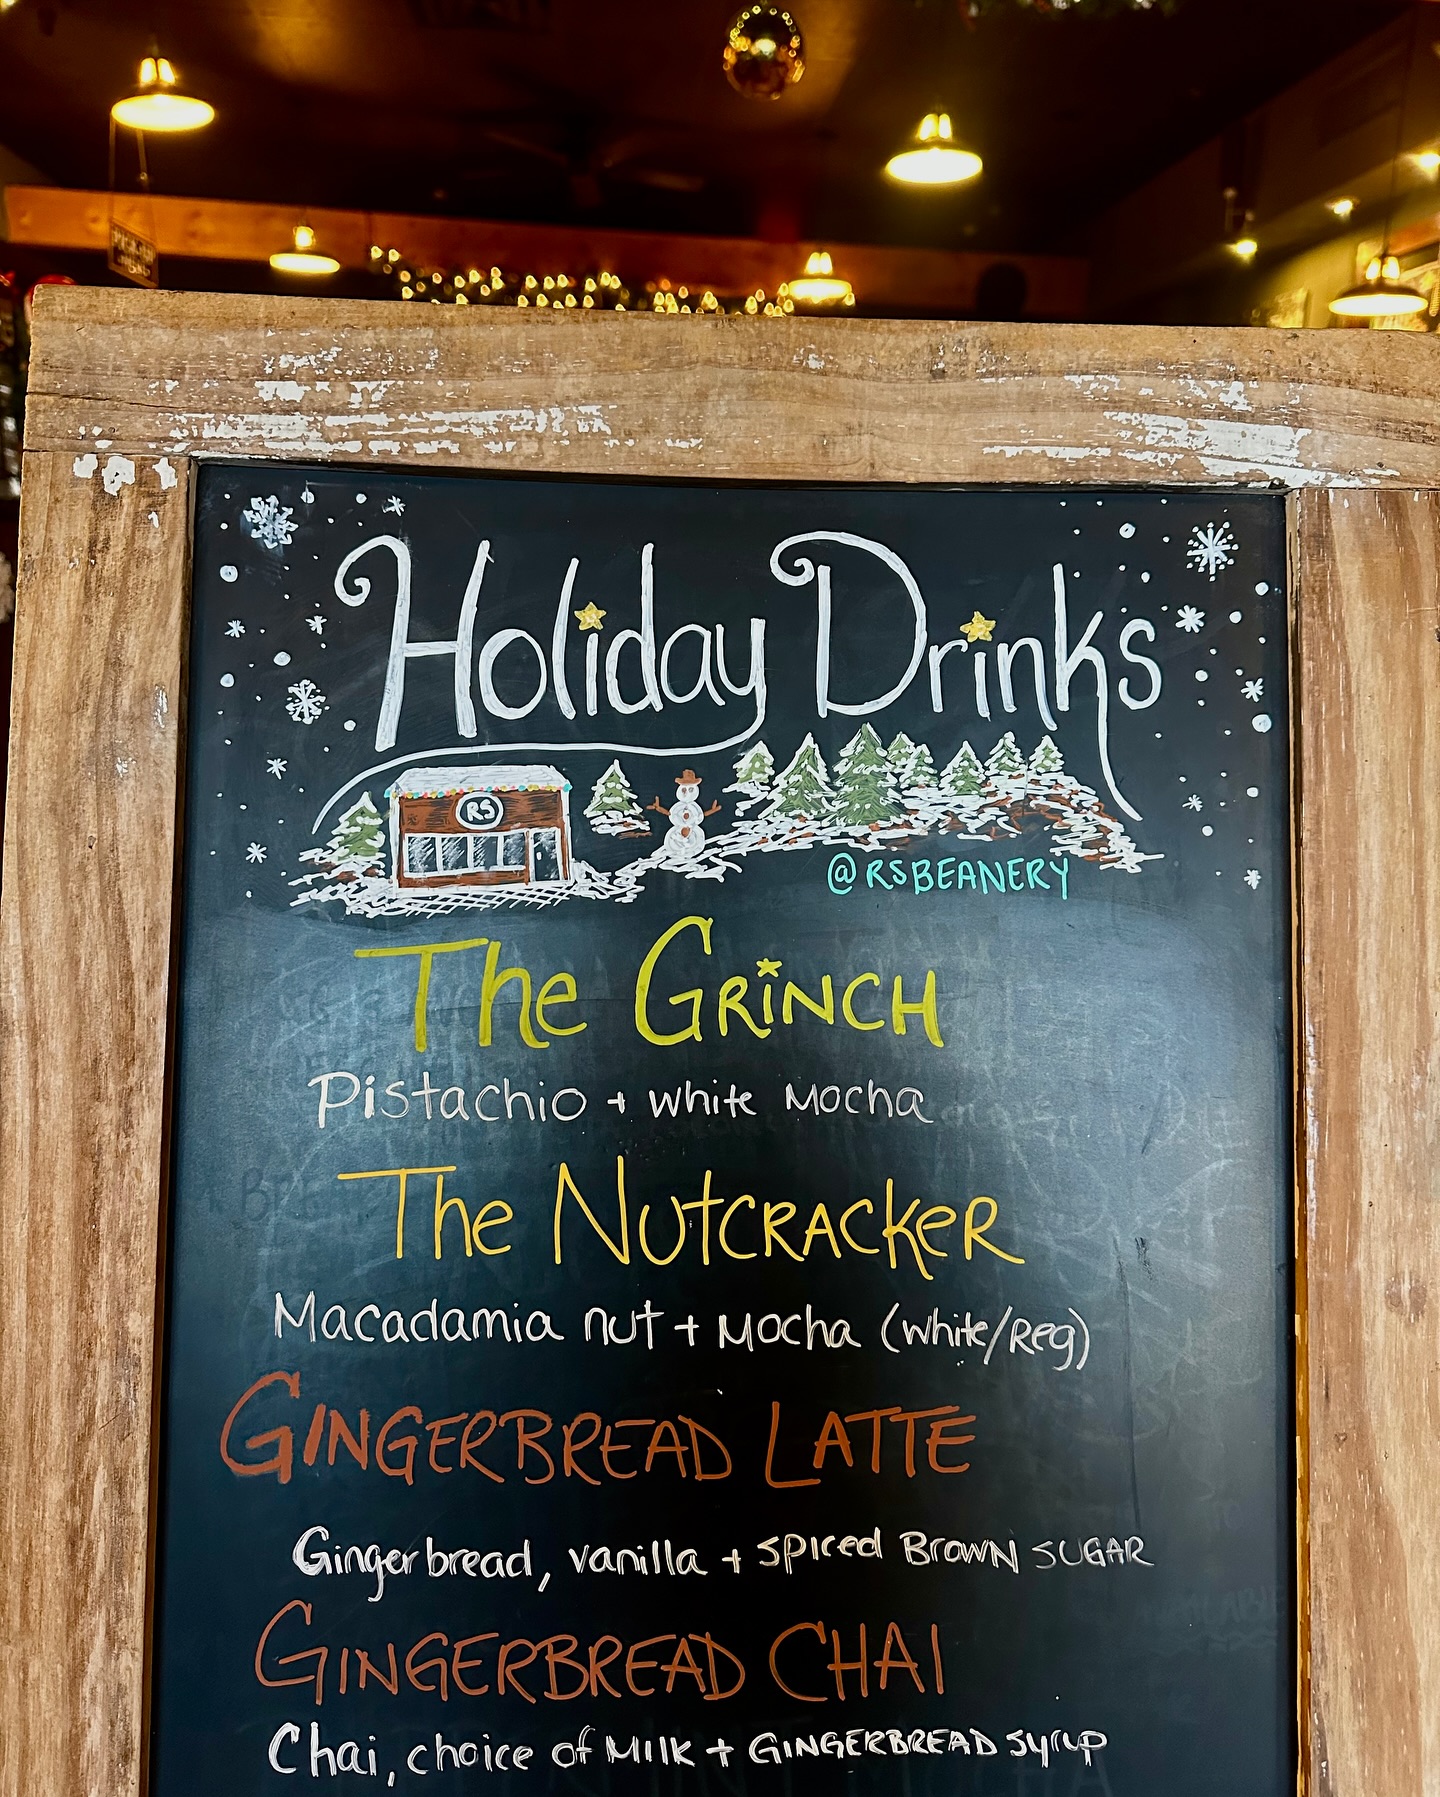 PICK UP
Holiday Drinks
RS
@RSBEANERY
The GRiNCH
Pistachio + white Mocha
The NutCRACKeR
Macadamia nut + Mocha (white/Reg)
GINGERBREAD LATTE
Gingerbread, vanilla + spiced BROWN SUGAR
GINGERBREAD CHAI
Chai, choice of MILK + GINGERBREAD Syrup